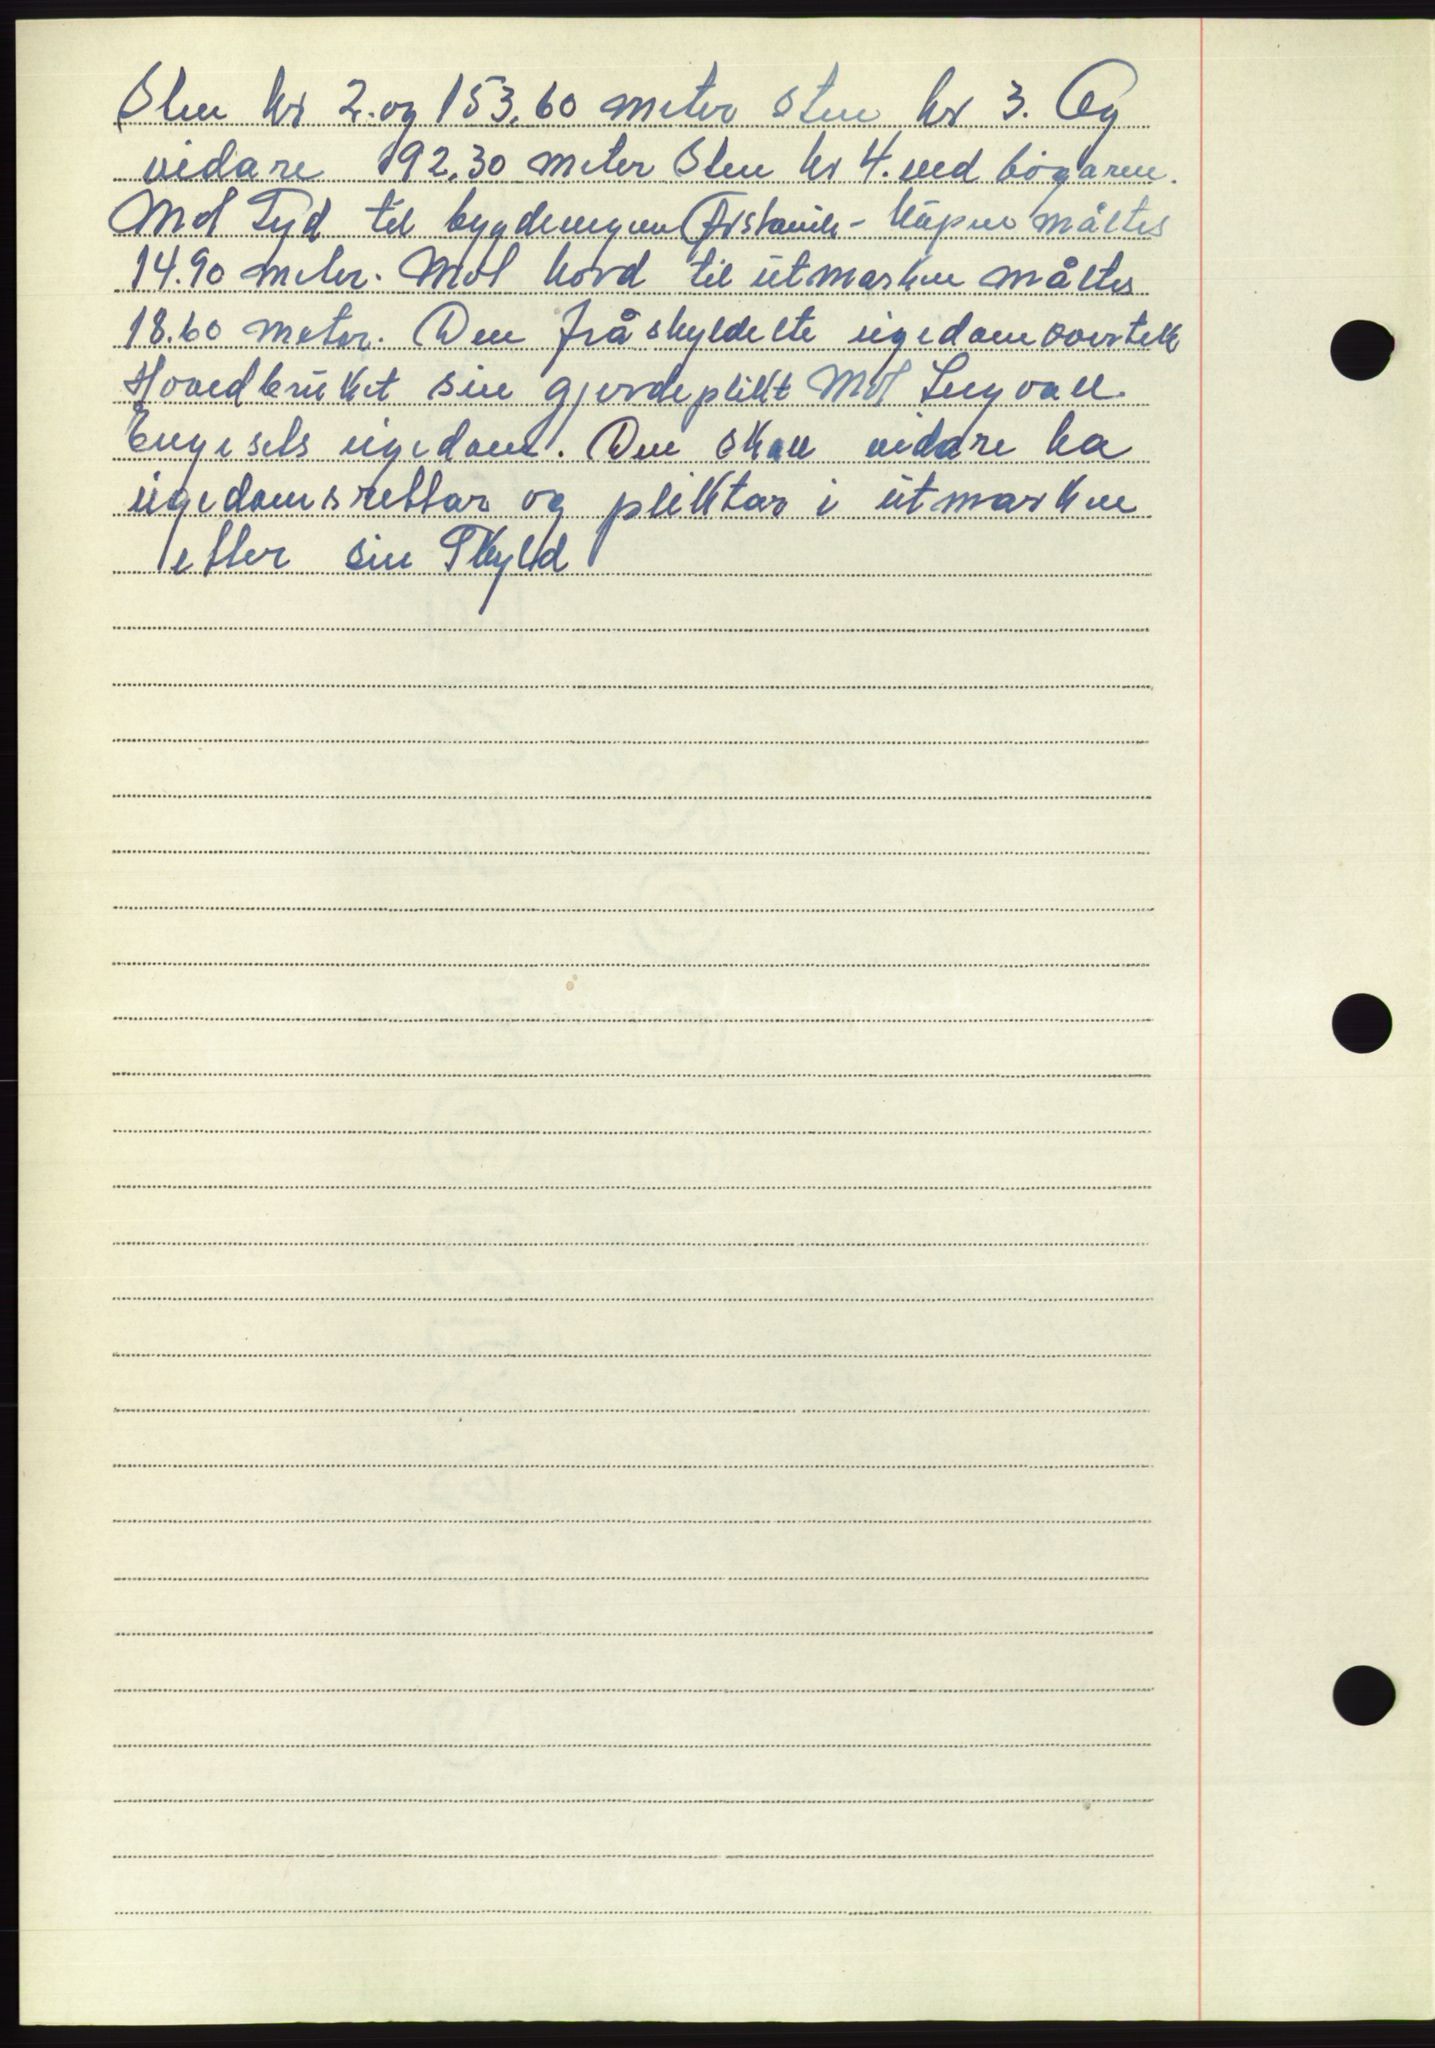 Sten nr 2. og 153,60 meter sten nr 3. Og
vidare 92.30 meter Sten nr 4. ved bøgaren.
Mot Syd til bygdevegen måltes
14.90 meter. Mot Nord til utmarken måltes
18.60 meter. Den fråskyldelte eigedom overtek
Hovedbruket sin gjerdeplikt Mot Ingvall
Engesets eigedom. Den skall vidare ha
eigedomsrettar og pliktar i utmarken
etter sin Skyld